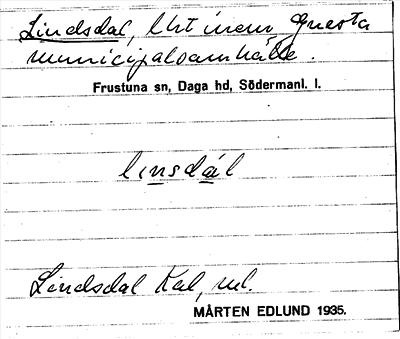 Lindsdal, lht inom Gnesta
municipalsamhälle.
Frustuna sn, Daga hd, Södermanl. l.
linsdál
Lindsdal Kal, ml.
MÅRTEN EDLUND 1935.